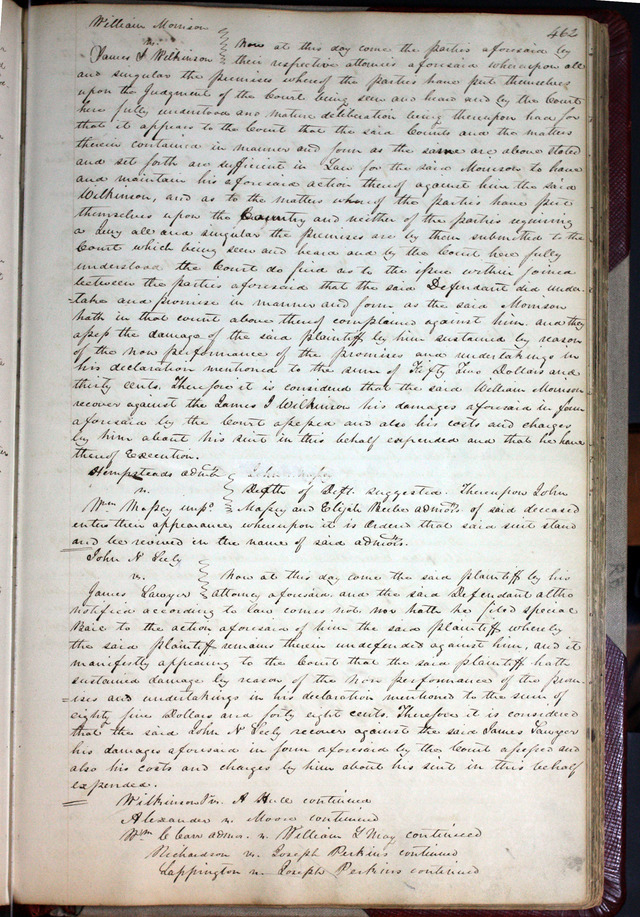 462
William Morrison
vs.
James J Wilkinson } Now at this day come the parties aforesaid by
their respective attornies aforesaid whereupon all
and singular the premises whereof the parties have put themselves
upon the Judgment of the Court being seen and heard and by the Court
here fully understood and mature deliberation being thereupon had for
that it appears to the Court that the said Counts and the matters
therein contained in manner and form as the same are above stated
and set forth are sufficient in Law for the said Morrison to have
and maintain his aforesaid action thereof against him the said
Wilkinson, and as to the matters whereof the parties have put
themselves upon the Country and neither of the parties requiring
a Jury all and singular the premises are by them submitted to the
Court which being seen and heard and by the Court here fully
understood the Court do find as to the issue within joined
between the parties aforesaid that the said Defendant did under-
take and promise in manner and form as the said Morrison
hath in that court above thereof complained against him. and they
assess the damage of the said plaintiff by him sustained by reason
of the non performance of the promises and undertakings in
his declaration mentioned to the sum of Fifty Two Dollars and
thirty cents. Therefore it is considered that the said William Morrison
recover against the James J Wilkinson his damages aforesaid in form
aforesaid by the Court assessed and also his costs and charges
by him about his suit in this behalf expended and that he have
thereof Execution.
Hempsteads admtr
v. } Death of Deft. suggested. Thereupon John
Wm Massey Massey and Elijah admors. of said deceased
enter their appearance whereupon it is Ordered that said suit stand
and be revived in the name of said admors.
John N Seely
v. } Now at this day come the said plaintiff by his
James Sawyer attorney aforesaid. and the said Defendant altho
notified according to law comes not, nor hath he filed special
Bail to the action aforesaid of him the said plaintiff whereby
the said plaintiff remains therein undefended against him, and it
manifestly appearing to the Court that the said plaintiff hath
sustained damage by reason of the non performance of the prom-
ises and undertakings in his declaration mentioned to the sum of
eighty five Dollars and forty eight cents. Therefore it is considered
that the said John N Seely recover against the said James Sawyer
his damages aforesaid in form aforesaid by the Court assessed and
also his costs and charges by him about his suit in this behalf
expended.
Wilkinson v. A Hull continued
Alexander v. Moore continued
Wm C Carr admor. v. William L May continued
Richardson v. Joseph Perkins continued
Lappington v. Joseph Perkins continued